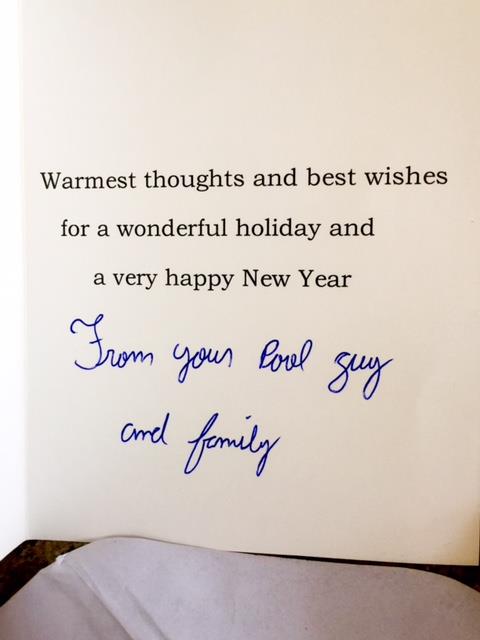 Warmest thoughts and best wishes
for a wonderful holiday and
a very happy New Year
From your Pool guy
and family